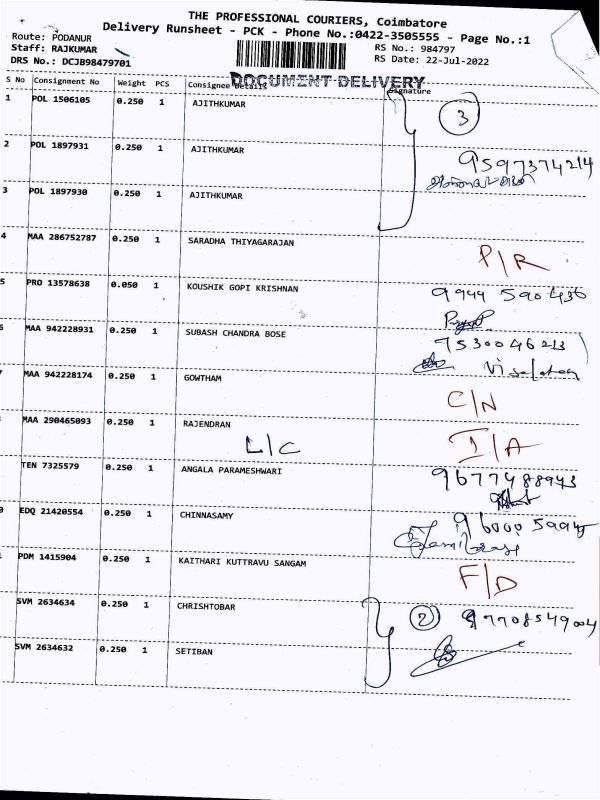 THE PROFESSIONAL COURIERS, Coimbatore
Delivery Runsheet - PCK - Phone No.:0422-3505555 - Page No.:1
Route: PODANUR
Staff: RAJKUMAR
DRS No.: DCJB98479701
RS No.: 984797
RS Date: 22-Jul-2022
DOCUMENT DELIVERY
S No Consignment No Weight PCS Consignee Details Signature
1 POL 1506105 0.250 1 AJITHKUMAR 3
2 POL 1897931 0.250 1 AJITHKUMAR 9597374214
3 POL 1897930 0.250 1 AJITHKUMAR
4 MAA 286752787 0.250 1 SARADHA THIYAGARAJAN P/R
5 PRO 13578638 0.050 1 KOUSHIK GOPI KRISHNAN 9944 590436
6 MAA 942228931 0.250 1 SUBASH CHANDRA BOSE 9530046213
MAA 942228174 0.250 1 GOWTHAM C/N
MAA 290465093 0.250 1 RAJENDRAN L/C I/A
TEN 7325579 0.250 1 ANGALA PARAMESHWARI 9677488943
EDQ 21420554 0.250 1 CHINNASAMY
PDM 1415904 0.250 1 KAITHARI KUTTRAVU SANGAM F/D
SVM 2634634 0.250 1 CHRISHTOBAR 2
SVM 2634632 0.250 1 SETIBAN